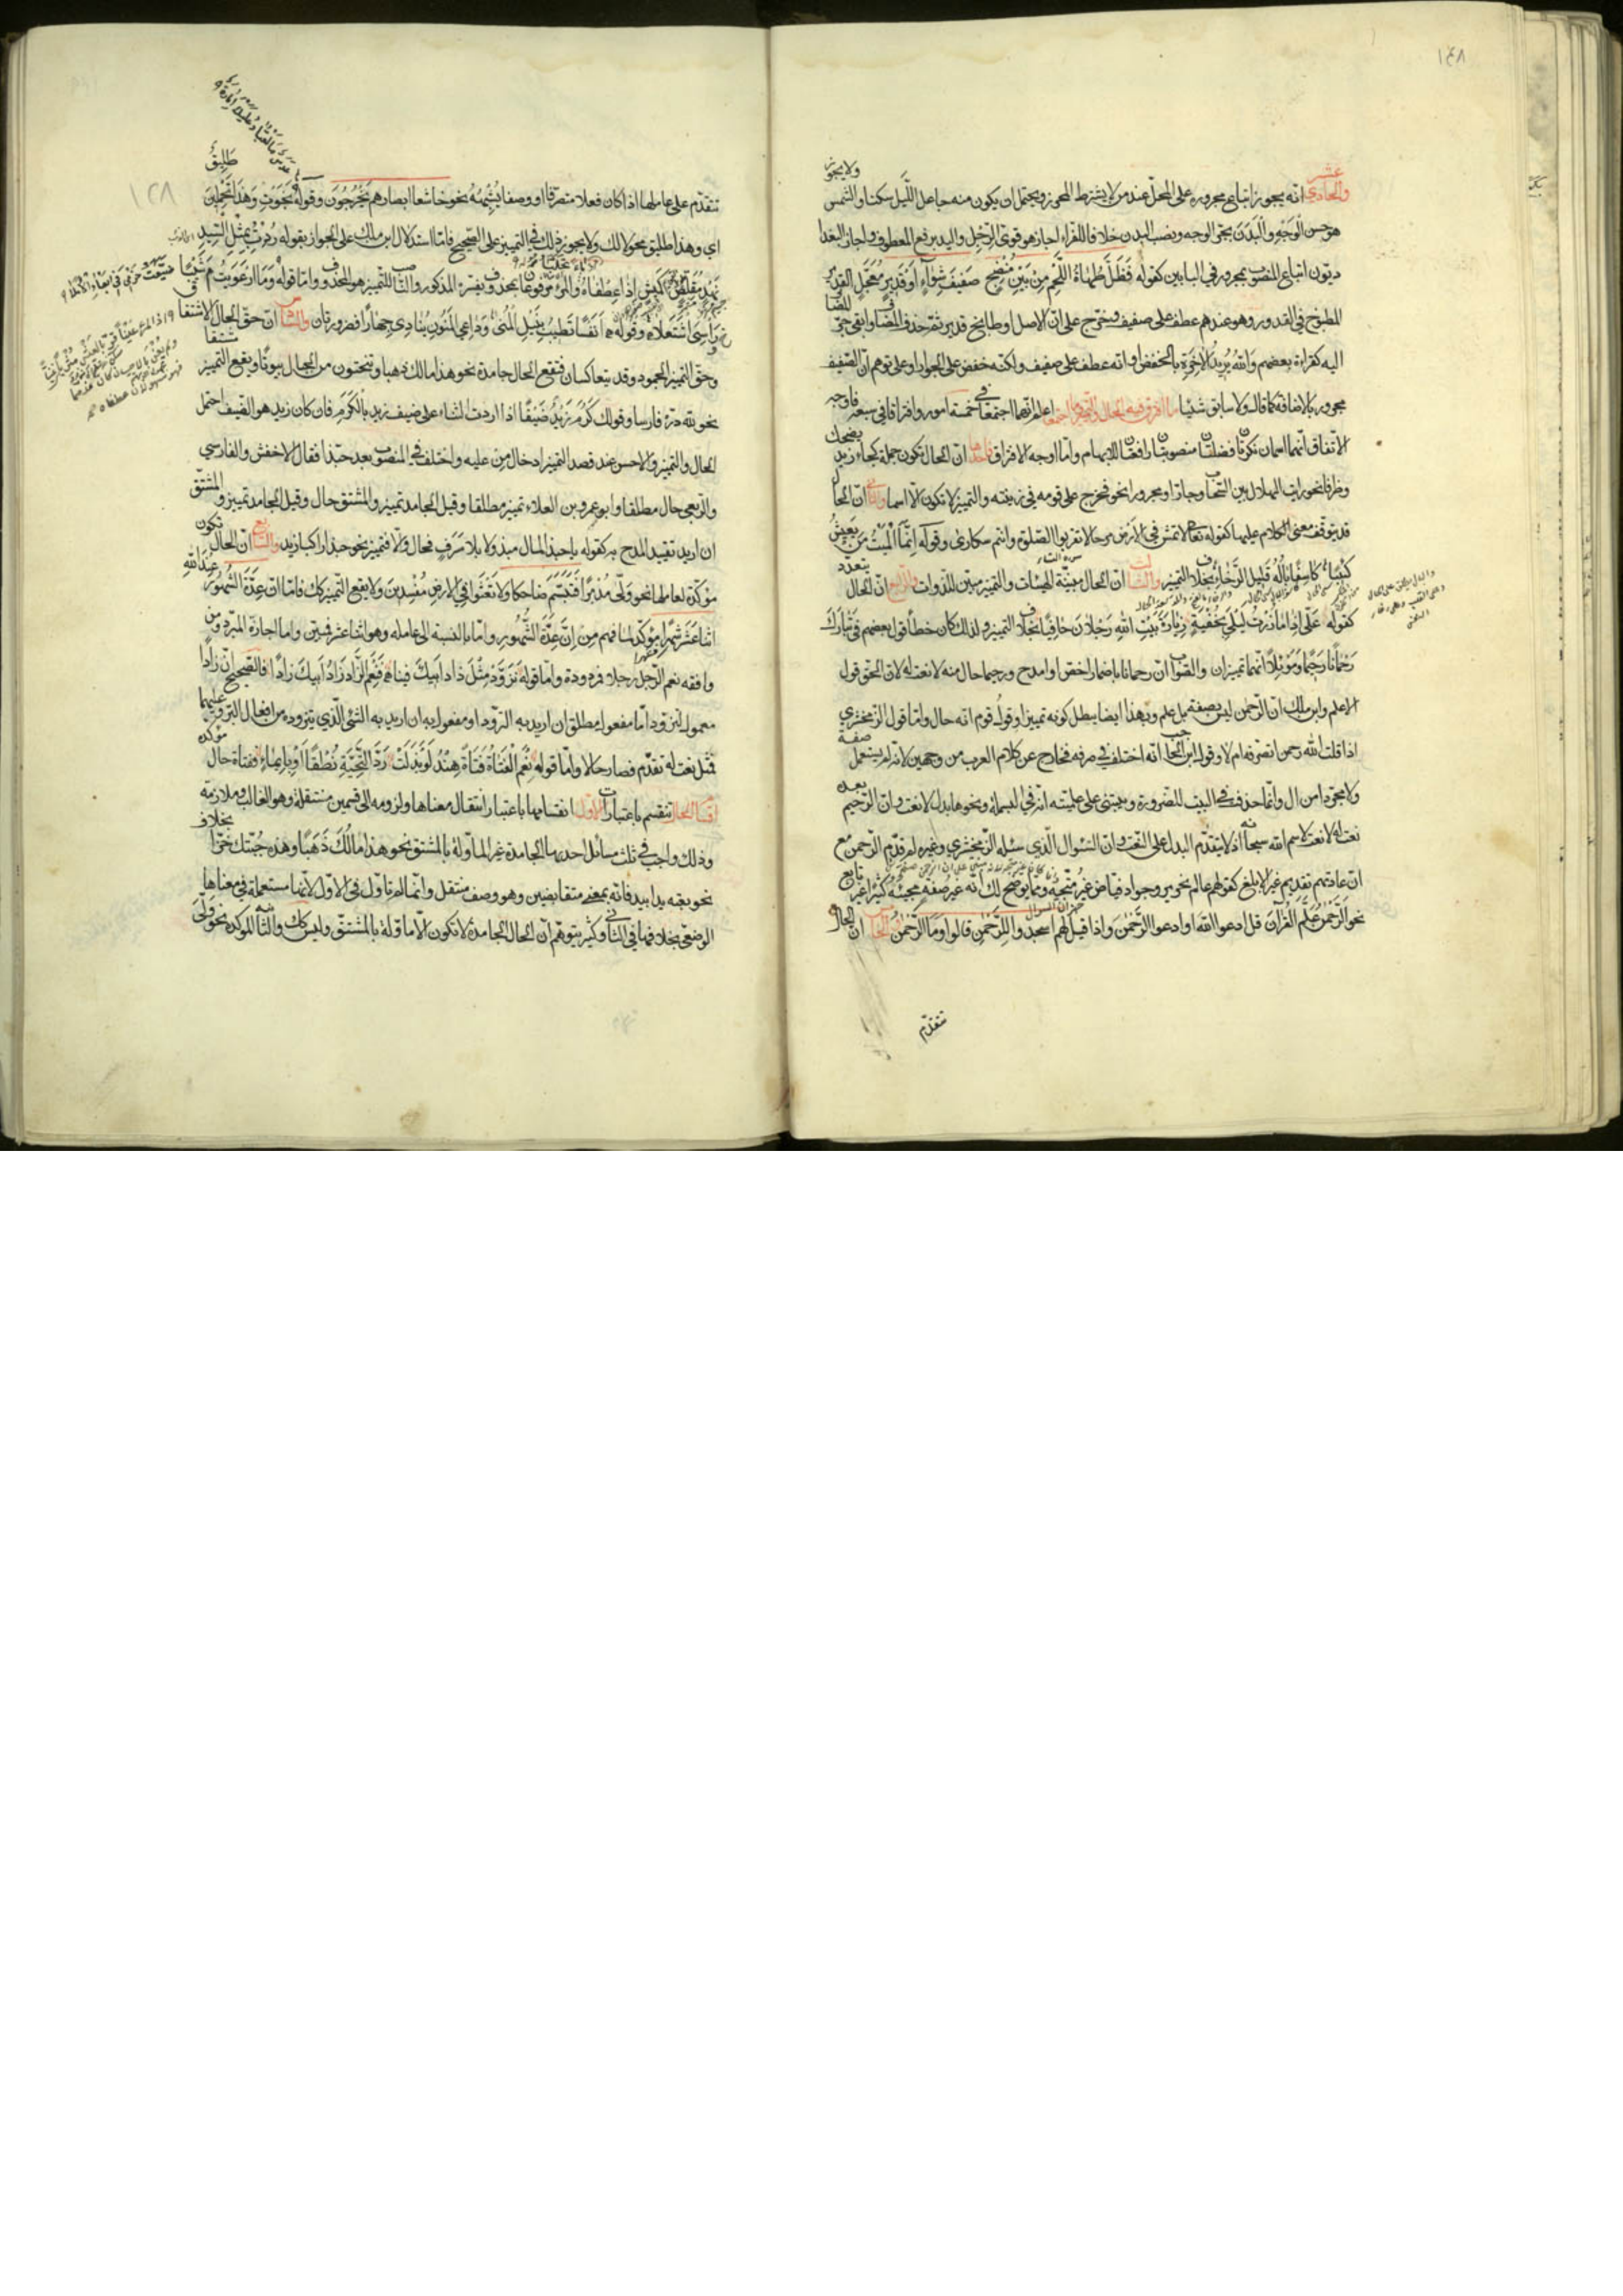 ١٤٨
والحادي عشر انه يجوز اتباع مجروره على المحل عند من لا يشترط المحرز ويحتمل ان يكون منه جاعل الليل سكنا والشمس ولا يجوز
هو حسن الوجه والبدن بجر الوجه ونصب البدن خلافا للفراء اجاز هو قوي الرجل واليد برفع المعطوف واجاز البغدا
ديون اتباع المنصوب بمجرور في البابين كقوله فظل طهاة اللحم من بين منضج صفيف شواء او قدير معجل القدير
المطبوخ في القدور وهو عندهم عطف على صفيف وخرج على ان الاصل او طابخ قدير ثم حذف المضاف وابقى جر المضاف
اليه كقراءة بعضهم والله يريد الاخرة بالخفض او انه عطف على صفيف ولكنه خفض على الجوار او على توهم ان الصفيف
مجرور بالاضافة كما قال ولا سابق شيئا ما افترق فيه الحال والتمييز وما اجتمعا اعلم انهما اجتمعا في خمسة امور وافترقا في سبعة فاوجه
الاتفاق انهما اسمان نكرتان فضلتان منصوبتان رافعتان للابهام واما اوجه الافتراق فاحدها ان الحال تكون جملة كجاء زيد يضحك
وظرفا نحو رايت الهلال بين السحاب وجارا ومجرورا نحو فخرج على قومه في زينته والتمييز لا يكون الا اسما والثاني ان الحال
قد يتوقف معنى الكلام عليها كقوله تعالى ولا تمش في الارض مرحا لا تقربوا الصلوة وانتم سكارى وقوله انما الميت من يعيش
كئيبا كاسفا باله قليل الرخاء بخلاف التمييز والثالث ان الحال مبينة للهيئات والتمييز مبين للذوات والرابع ان الحال يتعدد
كقوله علي اذا ما زرت ليلى بخفية زيارة بيت الله رجلان حافيا بخلاف التمييز ولذلك كان خطأ قول بعضهم في تبارك
رحمانا رحيما وموئلا انهما تمييزان والصواب ان رحمانا باضمار اخص او امدح ورحيما حال منه لا نعت له لان الحق قول
الاعلم وابن مالك ان الرحمن ليس بصفة بل علم وبهذا ايضا يبطل كونه تمييزا وقول قوم انه حال واما قول الزمخشري
اذا قلت الله رحمن اتصرفه ام لا وقول ابن الحاجب انه اختلف في صرفه فخارج عن كلام العرب من وجهين لانه لم يستعمل صفة
ولا مجردا من ال وانما حذفت في البيت للضرورة وينبني على علميته انه في البسملة ونحوها بدل لا نعت وان الرحيم بعده
نعت له لا نعت لاسم الله سبحانه اذ لا يتقدم البدل على النعت وان السؤال الذي سئله الزمخشري وغيره لم قدم الرحمن مع
ان عادتهم تقديم غير الابلغ كقولهم عالم نحرير وجواد فياض غير متجه ومما يوضح لك انه غير صفة مجيئه كثيرا غير تابع
نحو الرحمن علم القرآن قل ادعوا الله او ادعوا الرحمن واذا قيل لهم اسجدوا للرحمن قالوا وما الرحمن والخامس ان الحال
تتقدم
١٤٨
تتقدم على عاملها اذا كان فعلا متصرفا او وصفا يشبهه نحو خاشعا ابصارهم يخرجون وقوله نجوت وهذا تحملين طليق
اي وهذا طليق محمولا لك ولا يجوز ذلك في التمييز على الصحيح فاما استدلال ابن مالك على الجواز بقوله رددت بمثل السيد
نهد مقلص كميش اذا عطفاه وقوله اذا المرء عينا قر بالعيش مثريا فسهو لان عطفاه والمرء مرفوعان بمحذوف يفسره المذكور والناصب للتمييز هو المحذوف واما قوله وما ارعويت وشيبا
راسي اشتعلا وقوله انفسا تطيب بنيل المنى وداعي المنون ينادي جهارا فضرورتان والسادس ان حق الحال الاشتقاق
وحق التمييز الجمود وقد يتعاكسان فتقع الحال جامدة نحو هذا مالك ذهبا وتنحتون من الجبال بيوتا ويقع التمييز مشتقا
نحو لله دره فارسا وقولك كرم زيد ضيفا اذا اردت الثناء على ضيف زيد بالكرم فان كان زيد هو الضيف احتمل
الحال والتمييز والاحسن عند قصد التمييز ادخال من عليه واختلف في المنصوب بعد حبذا فقال الاخفش والفارسي
والربعي حال مطلقا وابو عمرو بن العلاء تمييز مطلقا وقيل الجامد تمييز والمشتق حال وقيل الجامد تمييز والمشتق
ان اريد تقييد المدح به كقوله يا حبذا المال مبذولا بلا سرف فحال والا فتمييز نحو حبذا راكبا زيد والسابع ان الحال تكون
مؤكدة لعاملها نحو ولى مدبرا فتبسم ضاحكا ولا تعثوا في الارض مفسدين ولا يقع التمييز كك فاما ان عدة الشهور عند الله
اثنا عشر شهرا فشهرا مؤكد لما فهم من ان عدة الشهور واما بالنسبة الى عامله وهو اثنا عشر فمبين واما اجازة المبرد ومن
وافقه نعم الرجل رجلا فمردودة واما قوله تزود مثل زاد ابيك فينا فنعم الزاد زاد ابيك زادا فالصحيح ان زادا
معمول لتزود اما مفعول مطلق ان اريد به التزود او مفعول به ان اريد به الشئ الذي يتزوده من افعال البر وعليهما
فمثل نعت له تقدم فصار حالا واما قوله نعم الفتاة فتاة هند لو بذلت رد التحية نطقا او بايماء ففتاة حال مؤكدة
اقسام الحال تنقسم باعتبارات الاول انقسامها باعتبار انتقال معناها ولزومه الى قسمين منتقلة وهو الغالب وملازمة
وذلك واجب في ثلث مسائل احديها الجامدة غير المأولة بالمشتق نحو هذا مالك ذهبا وهذه جبتك خزا بخلاف
نحو بعته يدا بيد فانه بمعنى متقابضين وهو وصف منتقل وانما لم تاول في الاول لانها مستعملة في معناها
الوضعي بخلافها في الثاني وكثير يتوهم ان الحال الجامدة لا تكون الا مأولة بالمشتق وليس كك والثانية المؤكدة نحو ولى